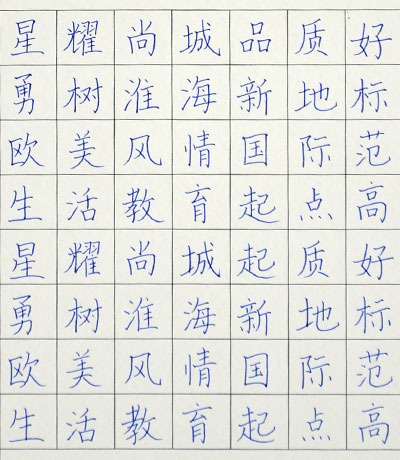 星耀尚城品质好
勇树淮海新地标
欧美风情国际范
生活教育起点高
星耀尚城起质好
勇树淮海新地标
欧美风情国际范
生活教育起点高